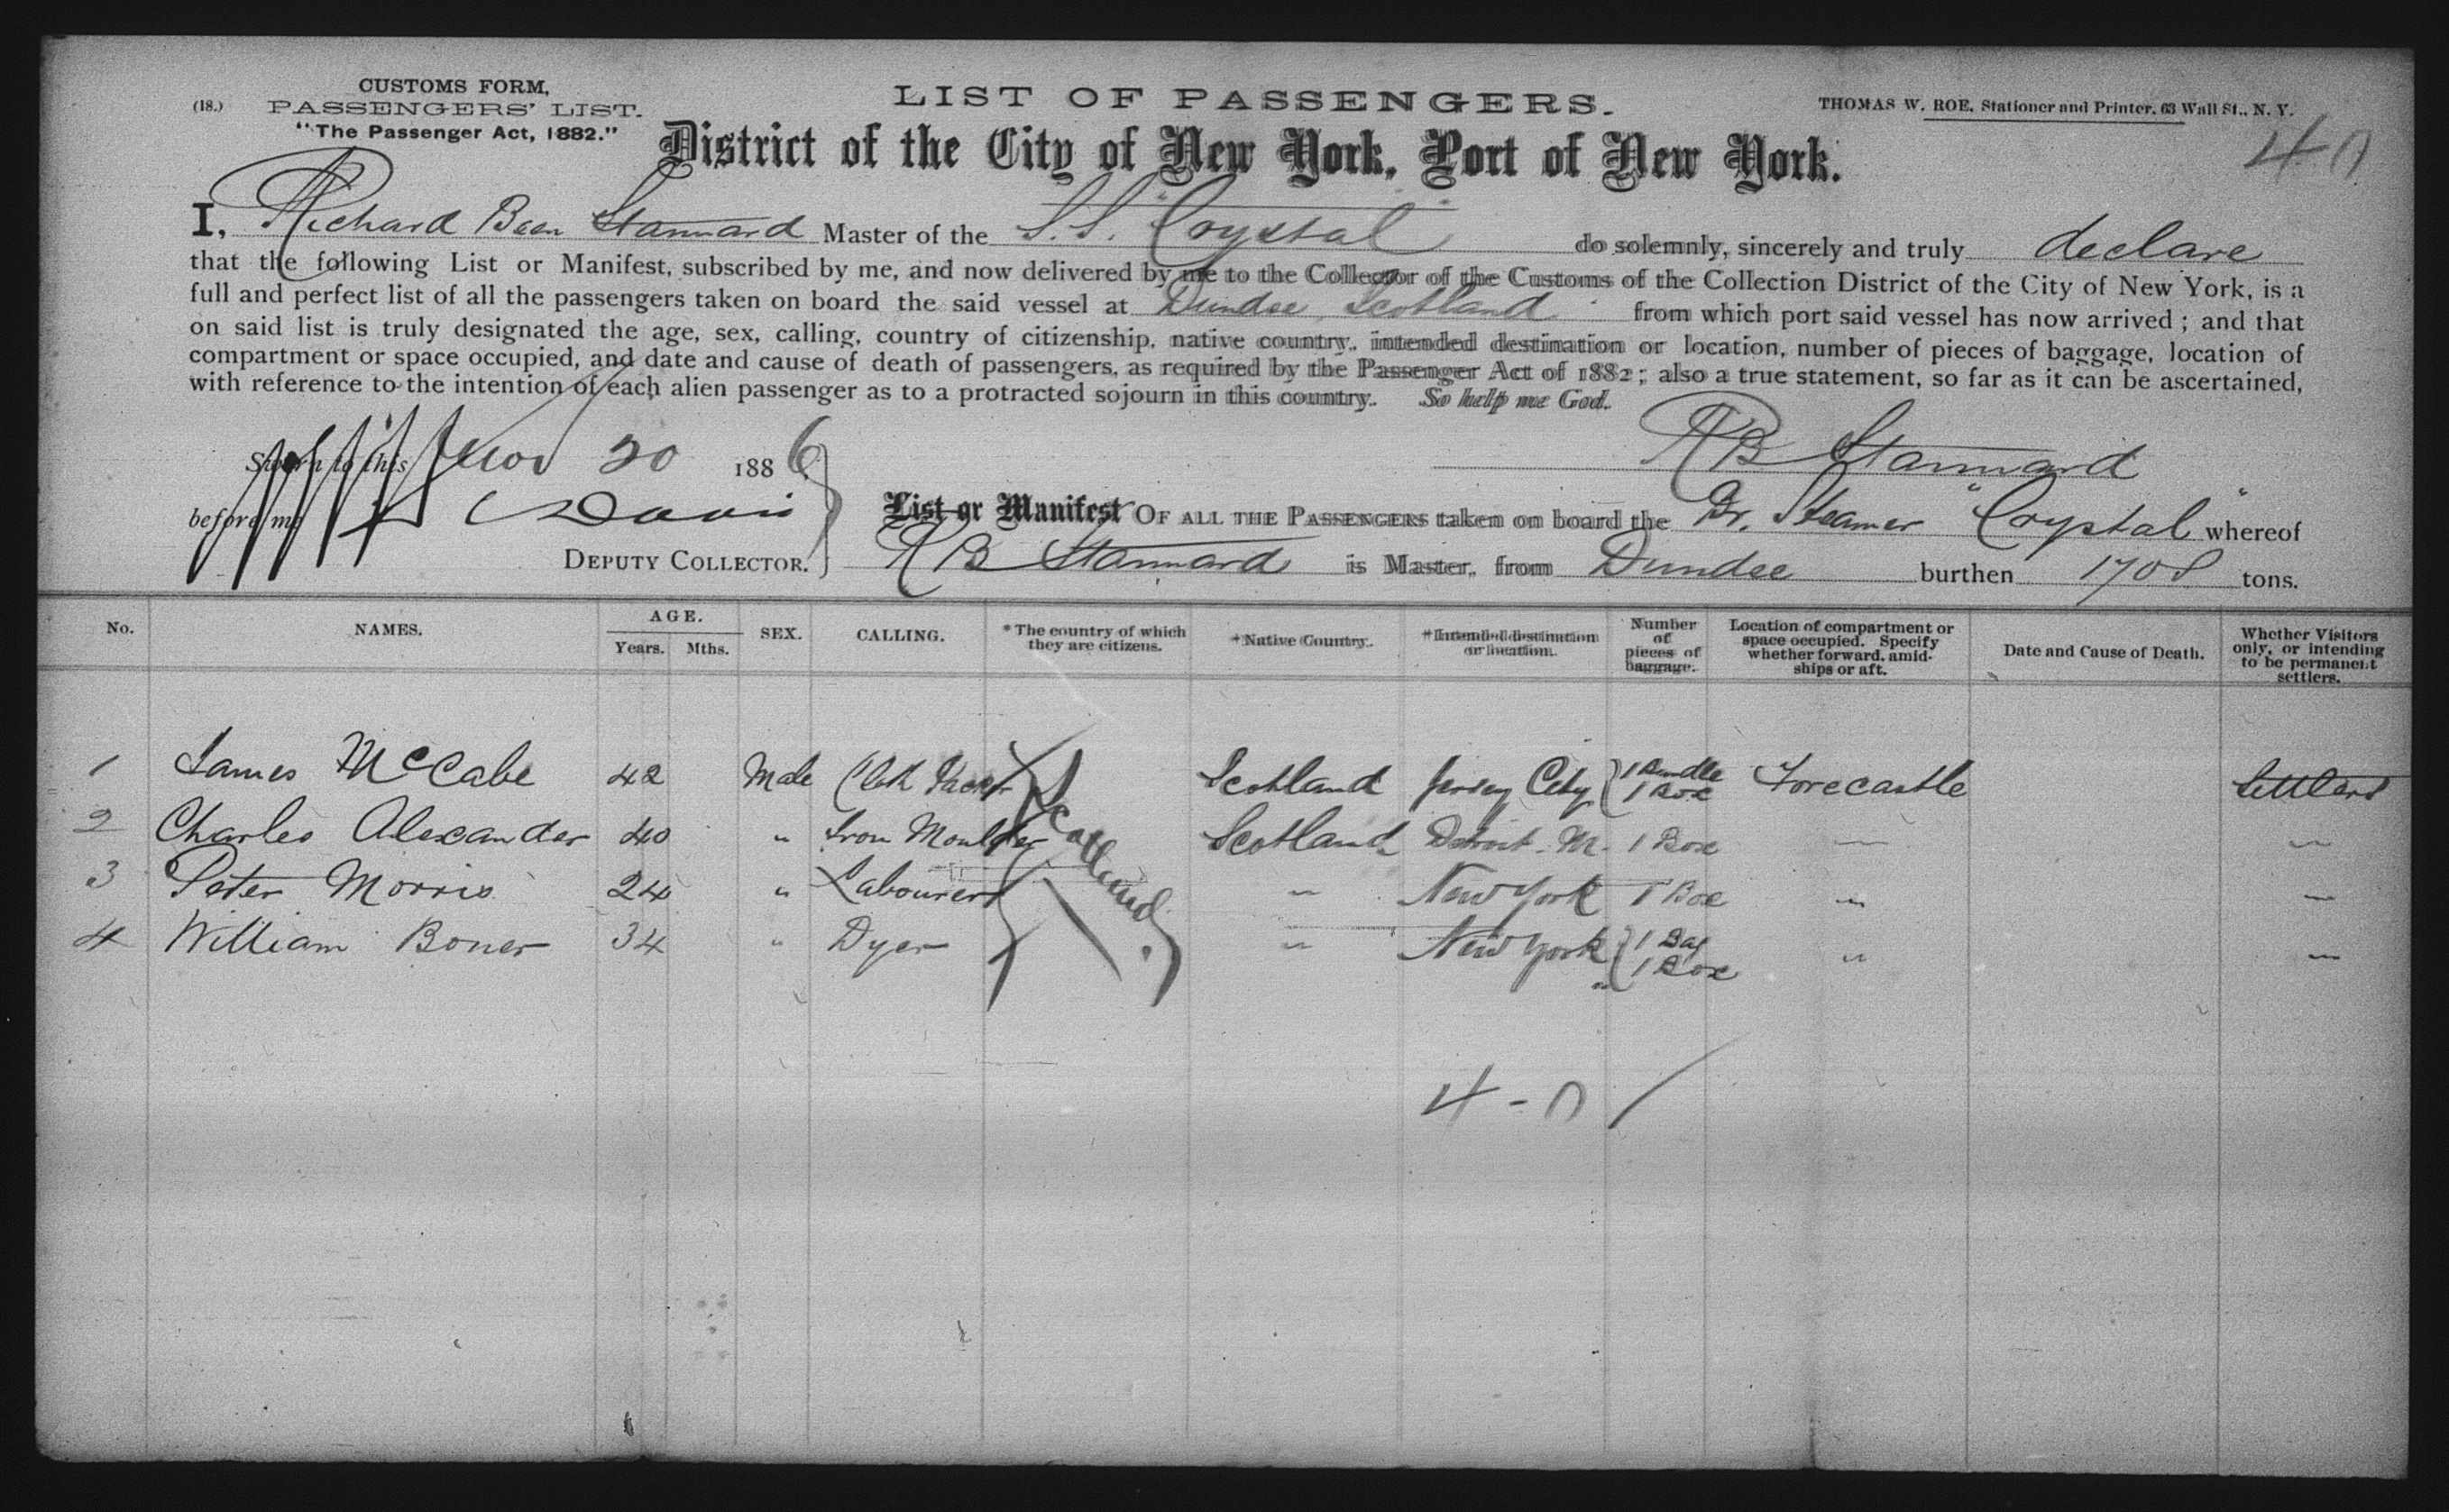 CUSTOMS FORM,
(18.) PASSENGERS' LIST.
"The Passenger Act, 1882."
LIST OF PASSENGERS.
THOMAS W. ROE, Stationer and Printer, 63 Wall St., N. Y.
District of the City of New York, Port of New York.
40
I, Richard Bean Stannard Master of the S.S. "Crystal do solemnly, sincerely and truly declare
that the following List or Manifest, subscribed by me, and now delivered by me to the Collector of the Customs of the Collection District of the City of New York, is a
full and perfect list of all the passengers taken on board the said vessel at Dundee Scotland from which port said vessel has now arrived; and that
on said list is truly designated the age, sex, calling, country of citizenship, native country, intended destination or location, number of pieces of baggage, location of
compartment or space occupied, and date and cause of death of passengers, as required by the Passenger Act of 1882; also a true statement, so far as it can be ascertained,
with reference to the intention of each alien passenger as to a protracted sojourn in this country. So help me God.
Sworn to this Nov 20 1886
R B Stannard
before me Davis
DEPUTY COLLECTOR.
List or Manifest OF ALL THE PASSENGERS taken on board the Br. Steamer "Crystal" whereof
R B Stannard is Master, from Dundee burthen 1708 tons.
No. NAMES. AGE. Years. Mths. SEX. CALLING. *The country of which they are citizens. *Native Country. *Intended destination or location. Number of pieces of baggage. Location of compartment or space occupied. Specify whether forward, amidships or aft. Date and Cause of Death. Whether Visitors only, or intending to be permanent settlers.
1 James McCabe 42 Male Scotland Scotland Jersey City 1 Bundle 1 Box Forecastle Settlers
2 Charles Alexander 40 " Iron Moulder Scotland Detroit. M. 1 Box — "
3 Peter Morris 24 " Labourer " New York 1 Box " "
4 William Boner 34 " Dyer " New York 1 Bag 1 Box " "
4-0